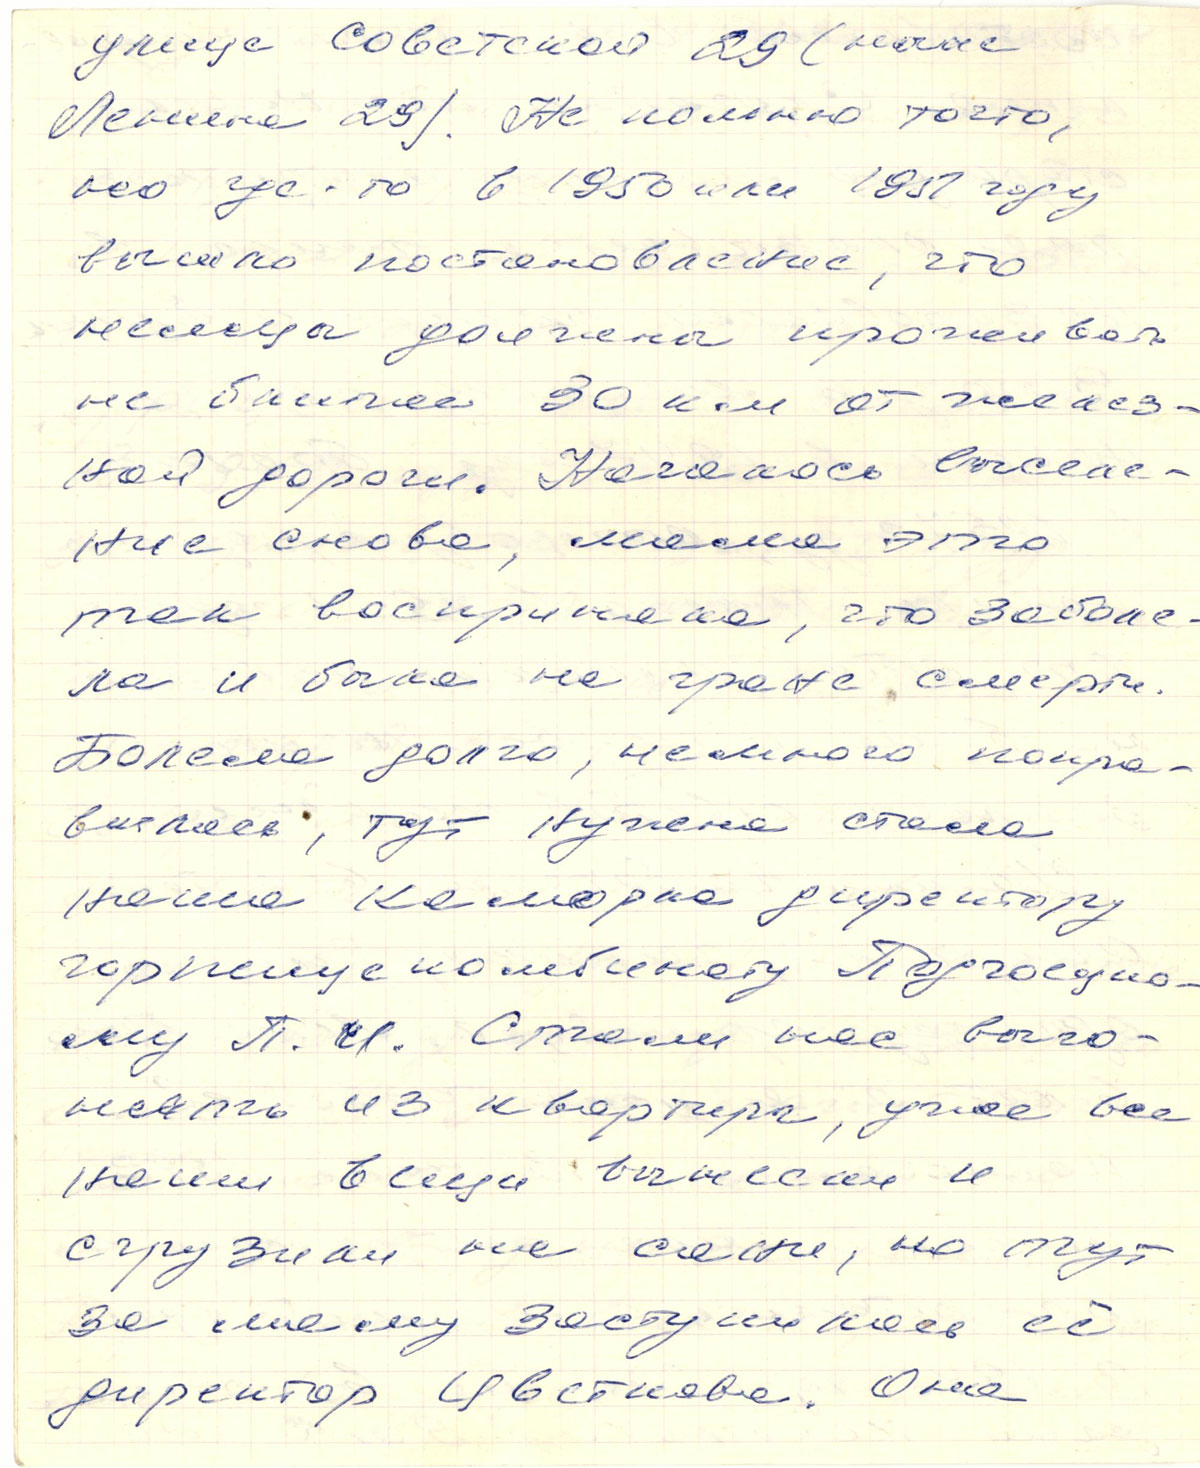 улице Советской 29 (ныне
Ленина 29). Не помню точто,
но где-то в 1950 или 1951 году
вышло постановление, что
немцы должны проживать
не ближее 30 км от желез-
ной дороги. Началось выселе-
ние снова, мама это
так восприняла, что заболе-
ла и была на гране смерти.
Болела долго, немного попра-
вилась, тут нужна стала
наша каморка директору
горпищекомбинату Подгоедно-
му П. И. Стали нас выго-
нять из квартиры, уже все
наши вещи вынесли и
сгрузили на сани, но тут
за маму заступилась её
директор Цветкова. Она